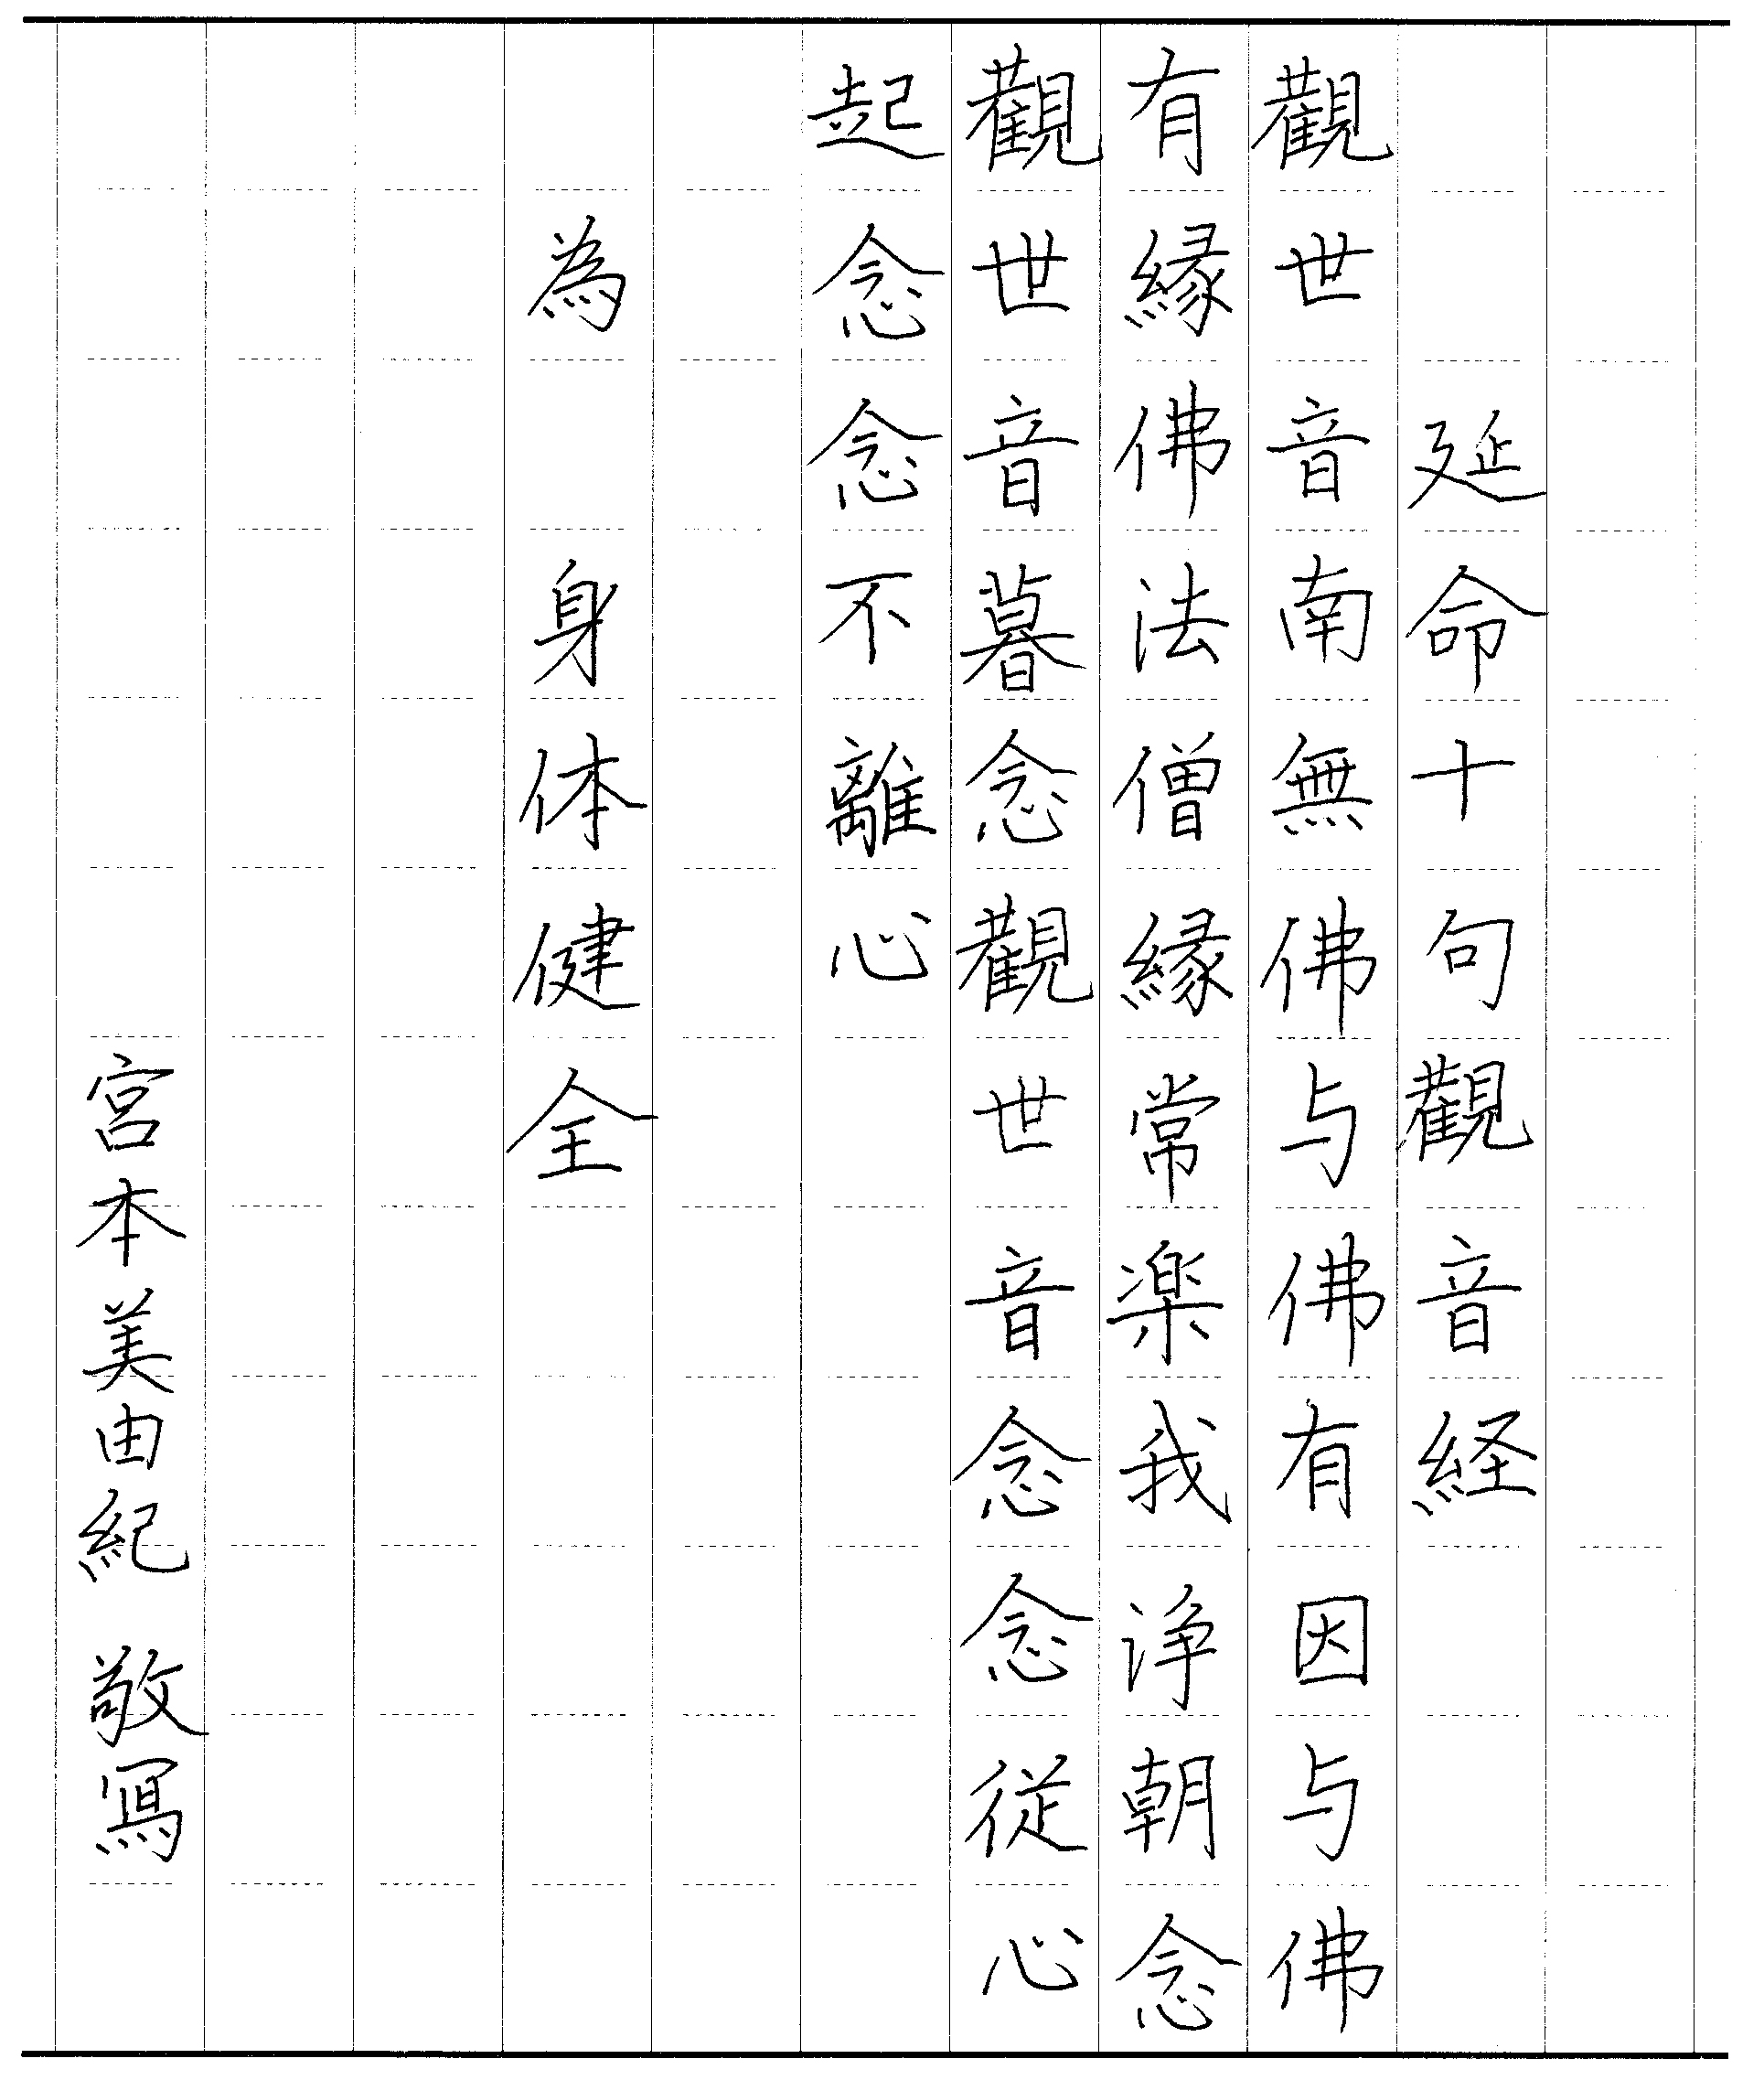 延命十句觀音経
觀世音南無佛与佛有因与佛
有縁佛法僧縁常楽我浄朝念
觀世音暮念觀世音念念従心
起念念不離心
為 身体健全
宮本美由紀 敬寫